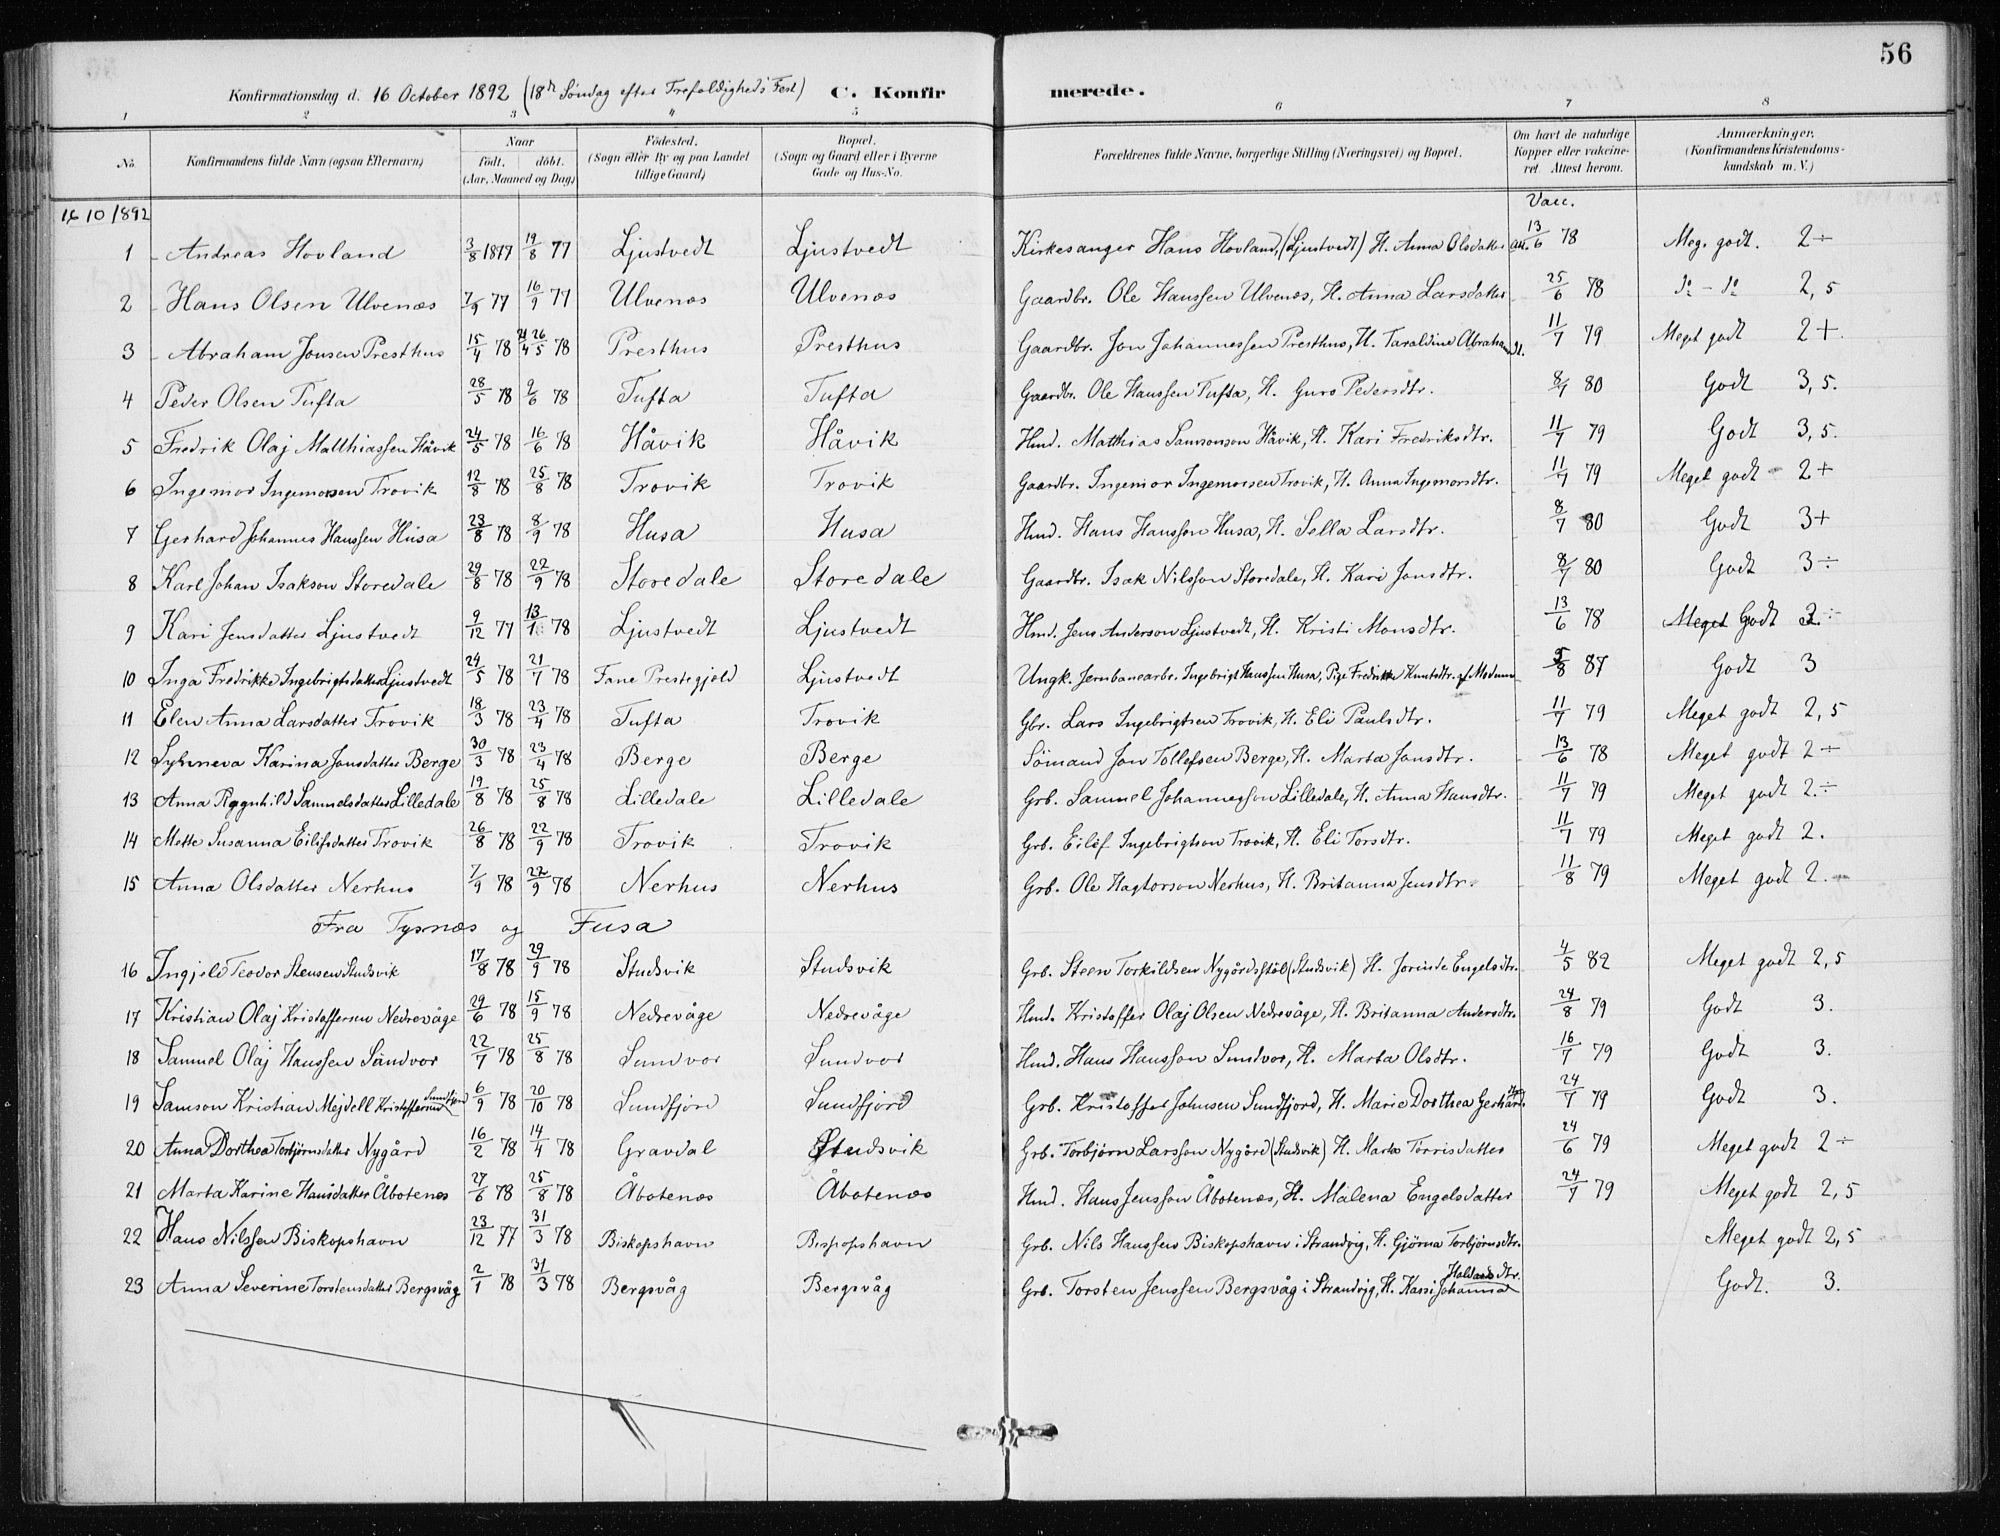 56
Konfirmationsdag d. 16 October 1892 (18de Söndag efter Trefoldigheds Fest) C. Konfirmerede.
1 2 3 4 5 6 7 8
No. Konfirmandens fulde Navn (ogsaa Efternavn) Naar födt, döbt. (Aar, Maaned og Dag) Födested. (Sogn eller By og paa Landet tillige Gaard) Bopæl. (Sogn og Gaard eller i Byerne Gade og Hus-No. Forældrenes fulde Navne, borgerlige Stilling (Næringsvei) og Bopæl. Om havt de naturlige Kopper eller vakcineret. Attest herom. Anmærkninger. (Konfirmandens Kristendomskundskab m. V.)
16 10/1892 Vacc.
1 Andreas Hovland 3/8 1877 19/8 77 Ljustvedt Ljustvedt Kirkesanger Hans Hovland, (Ljustvedt) H. Anna Olsdatter att. 13/6 78 Meg. godt. 2÷
2 Hans Olsen Ulvenæs 7/9 77 16/9 77 Ulvenæs Ulvenæs Gaardbr. Ole Hanssen Ulvenæs, H. Anna Larsdatter 25/6 78 do - do 2,5
3 Abraham Jonsen Presthus 15/4 78 21/4 26/5 78 Presthus Presthus Gaardbr. Jon Johannessen Presthus, H. Taraldine Abrahamsdt. 11/7 79 Meget godt 2+.
4 Peder Olsen Tufta 28/5 78 9/6 78 Tufta Tufta Gaardbr. Ole Hanssen Tufta, H. Guro Pedersdtr. 8/7 80 Godt 3,5.
5 Fredrik Olaj Matthiassen Håvik 24/5 78 16/6 78 Håvik Håvik Hmd. Matthias Samsonson Håvik, H. Kari Fredriksdtr. 11/7 79 Godt 3,5.
6 Ingemor Ingemorsen Trovik 12/8 78 25/8 78 Trovik Trovik Gaardbr. Ingemor Ingemorsen Trovik, H. Anna Ingemorsdtr. 11/7 79 Meget godt - 2+
7 Gerhard Johannes Hanssen Husa 23/8 78 8/9 78 Husa Husa Hmd. Hans Hansson Husa, H. Sella Larsdtr. 8/7 80 Godt 3+
8 Karl Johan Isakson Storedale 29/8 78 22/9 78 Storedale Storedale Gaardbr. Isak Nilsson Storedale, H. Kari Jonsdtr. 8/7 80 Godt 3÷
9 Kari Jensdatter Ljustvedt 9/12 77 13/1 78 Ljustvedt Ljustvedt Hmd. Jens Anderson Ljustvedt, H. Kristi Monsdtr. 13/6 78 Meget Godt 3÷
10 Inga Fredrikke Ingebrigtsdatter Ljustvedt 24/5 78 21/7 78 Fane Prestegjeld Ljustvedt Ungk. Jernbanearb. Ingebrigt Hanssen Husa, Pige Fredrikke Knutsdtr. af Modum 5/8 87 Godt 3
11 Elen Anna Larsdatter Trovik 18/3 78 23/4 78 Tufta Trovik Gbr. Lars Ingebrigtsen Trovik, H. Eli Paulsdtr. 11/7 79 Meget godt 2,5
12 Synneva Karina Jonsdatter Berge 30/3 78 23/4 78 Berge Berge Sömand Jon Tollefsen Berge, H. Marta Jonsdtr. 13/6 78 Meget godt 2÷
13 Anna Ragnhild Samuelsdatter Lilledale 19/8 78 25/8 78 Lilledale Lilledale Grb. Samuel Johannesson Lilledale, H. Anna Hansdtr. 11/7 79 Meget godt 2.÷
14 Mette Susanna Eilifsdatter Trovik 26/8 78 22/9 78 Trovik Trovik Grb. Eilef Ingebrigtson Trovik, H. Eli Torsdtr. 11/7 79 Meget godt 2.
15 Anna Olsdatter Nerhus 7/9 78 22/9 78 Nerhus Nerhus Grb. Ole Hagtorson Nerhus, H. Britanna Jensdtr. 11/8 79 Meget godt 2.
Fra Tysnæs og Fusa
16 Ingjeld Teodor Stensen Studsvik 17/8 78 29/9 78 Studsvik Studsvik Grb. Steen Torkildsen Nygårdsstöl (Studsvik) H. Jorinde Engelsdtr. 4/5 82 Meget godt 2,5
17 Kristian Olaj Kristoffersen Nedrevåge 29/6 78 15/9 78 Nedrevåge Nedrevåge Hmd. Kristoffer Olaj Olsen Nedrevåge, H. Britanna Andersdtr. 24/8 79 Godt 3.
18 Samuel Olaj Hanssen Sundvor 22/7 78 25/8 78 Sundvor Sundvor Hmd. Hans Hansson Sundvor, H. Marta Olsdtr. 16/7 79 Godt 3.
19 Samson Kristian Mejdell Kristoffersen Sundfjord 6/9 78 20/10 78 Sundfjord Sundfjord Grb. Kristoffer Johnsen Sundfjord, H. Marie Dorthea Gerhardsdtr. 24/7 79 Godt 3.
20 Anna Dorthea Torbjørnsdatter Nygård 16/2 78 14/4 78 Gravdal Studsvik Grb. Torbjørn Larsson Nygård (Studsvik) H. Marta Tørrisdatter 24/6 79 Meget godt 2÷
21 Marta Karine Hansdatter Åbotenes 27/6 78 25/8 78 Åbotenæs Åbotenæs Hmd. Hans Jensson Åbotenæs, H. Malena Engelsdatter 24/7 79 Meget godt 2,5
22 Hans Nilssen Biskopshavn 23/12 77 31/3 78 Biskopshavn Bispopshavn Grb. Nils Hanssen Biskopshavn i Strandvig, H. Gjörna Torbjörnsdtr. Meget godt 2,5
23 Anna Severine Torstensdatter Bergsvåg 2/1 78 31/3 78 Bergsvåg Bergsvåg Grb. Torsten Jenssen Bergsvåg i Strandvig, H. Kari Johanna Haldorsdtr. Godt. 3.